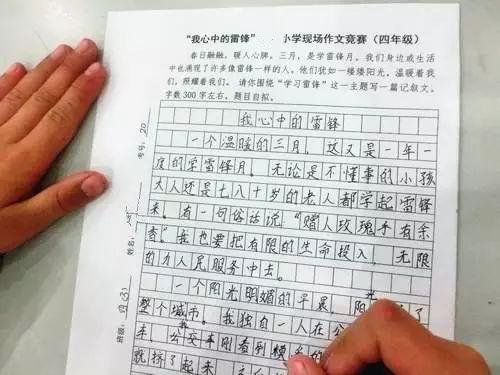 “我心中的雷锋” 小学现场作文竞赛（四年级）
春日融融，暖人心脾。三月，是学雷锋月。我们身边或生活
中也涌现了许多像雷锋一样的人。他们犹如一缕缕阳光，温暖着我
们，照耀着我们。请你围绕“学习雷锋”这一主题写一篇记叙文。
字数300字左右。题目自拟。
我心中的雷锋
一个温暖的三月，这又是一年一
度的学雷锋月。无论是不懂事的小孩
大人还是七八十岁的老人都学起雷锋
来。有一句俗话说：“赠人玫瑰手有余
香。”我也要把有限的生命投入，无限
的为人民服务中去。
一个阳光明媚的早晨，阳光 了
整个城市。我独自一人在公
车，公交车刚看到
就挤了起来
考号：20
姓名：
班级：四(3)